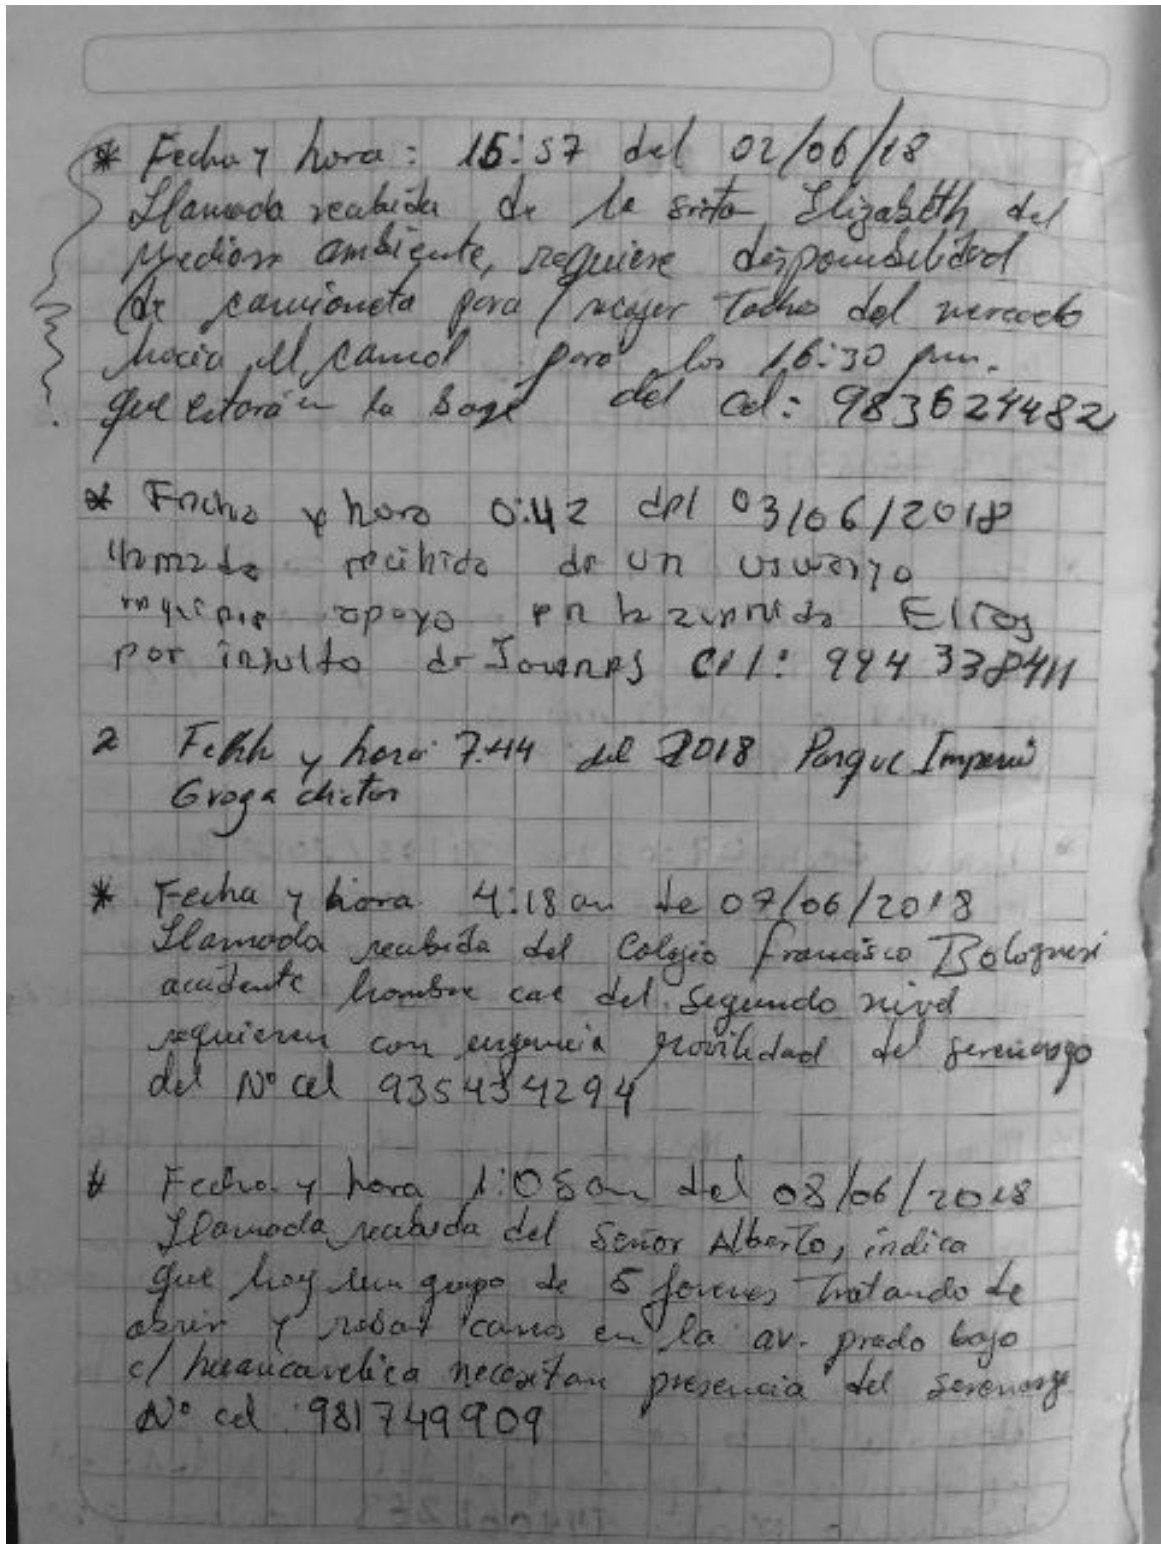 * Fecha y hora: 15:57 del 02/06/18
Llamada recibida de la srita Elizabeth del
Medioa ambiente, requiere disponibilidad
de camioneta para recojer Tacho del mercado
hacia el camal para los 16:30 pm.
que estara en la base del cel: 983624482
* Fecha y hora 0:42 del 03/06/2018
llamada recibida de un usuario
requiere apoyo en la avenida Ejercito
por insulto de Jovenes cel: 994338411
2 Fecha y hora 7:44 del 2018 Parque
* Fecha y hora 4:18 am de 07/06/2018
Llamada recibida del Colegio Francisco Bolognesi
accidente hombre cae del segundo nivel
requieren con urgencia movilidad del serenazgo
del N° cel 935434294
* Fecha y hora 1:05 am del 08/06/2018
Llamada recibida del Señor Alberto, indica
que hay un grupo de 5 jovenes Tratando de
abrir y robar carros en la av. prado bajo
c/ huancavelica necesitan presencia del serenazgo
N° cel 981749909